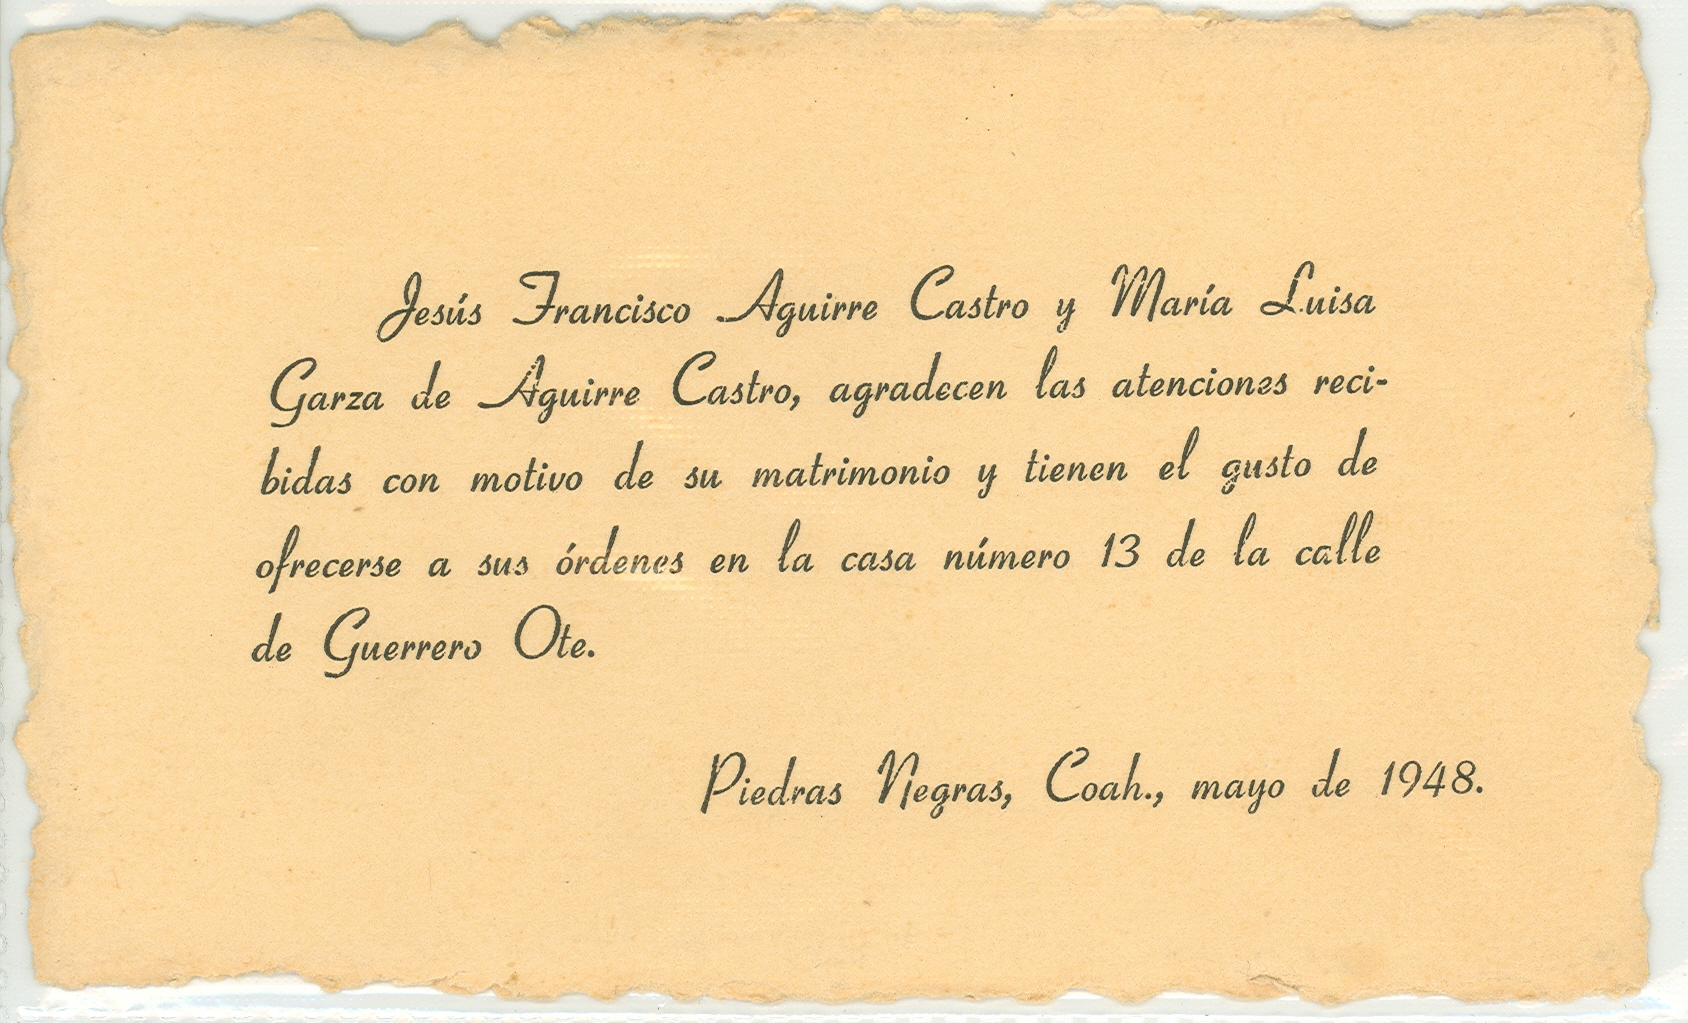 Jesús Francisco Aguirre Castro y María Luisa
Garza de Aguirre Castro, agradecen las atenciones reci-
bidas con motivo de su matrimonio y tienen el gusto de
ofrecerse a sus órdenes en la casa número 13 de la calle
de Guerrero Ote.
Piedras Negras, Coah., mayo de 1948.